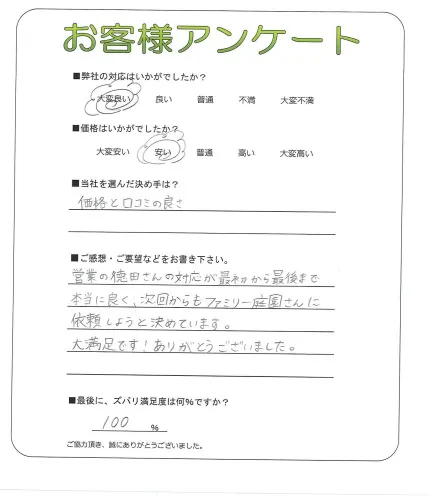 お客様アンケート
■弊社の対応はいかがでしたか?
大変良い 良い 普通 不満 大変不満
■価格はいかがでしたか?
大変安い 安い 普通 高い 大変高い
■当社を選んだ決め手は?
価格と口コミの良さ
■ご感想・ご要望などをお書き下さい。
営業の徳田さんの対応が最初から最後まで
本当に良く、次回からもファミリー庭園さんに
依頼しようと決めています。
大満足です!ありがとうございました。
■最後に、ズバリ満足度は何%ですか?
100 %
ご協力頂き、誠にありがとうございました。